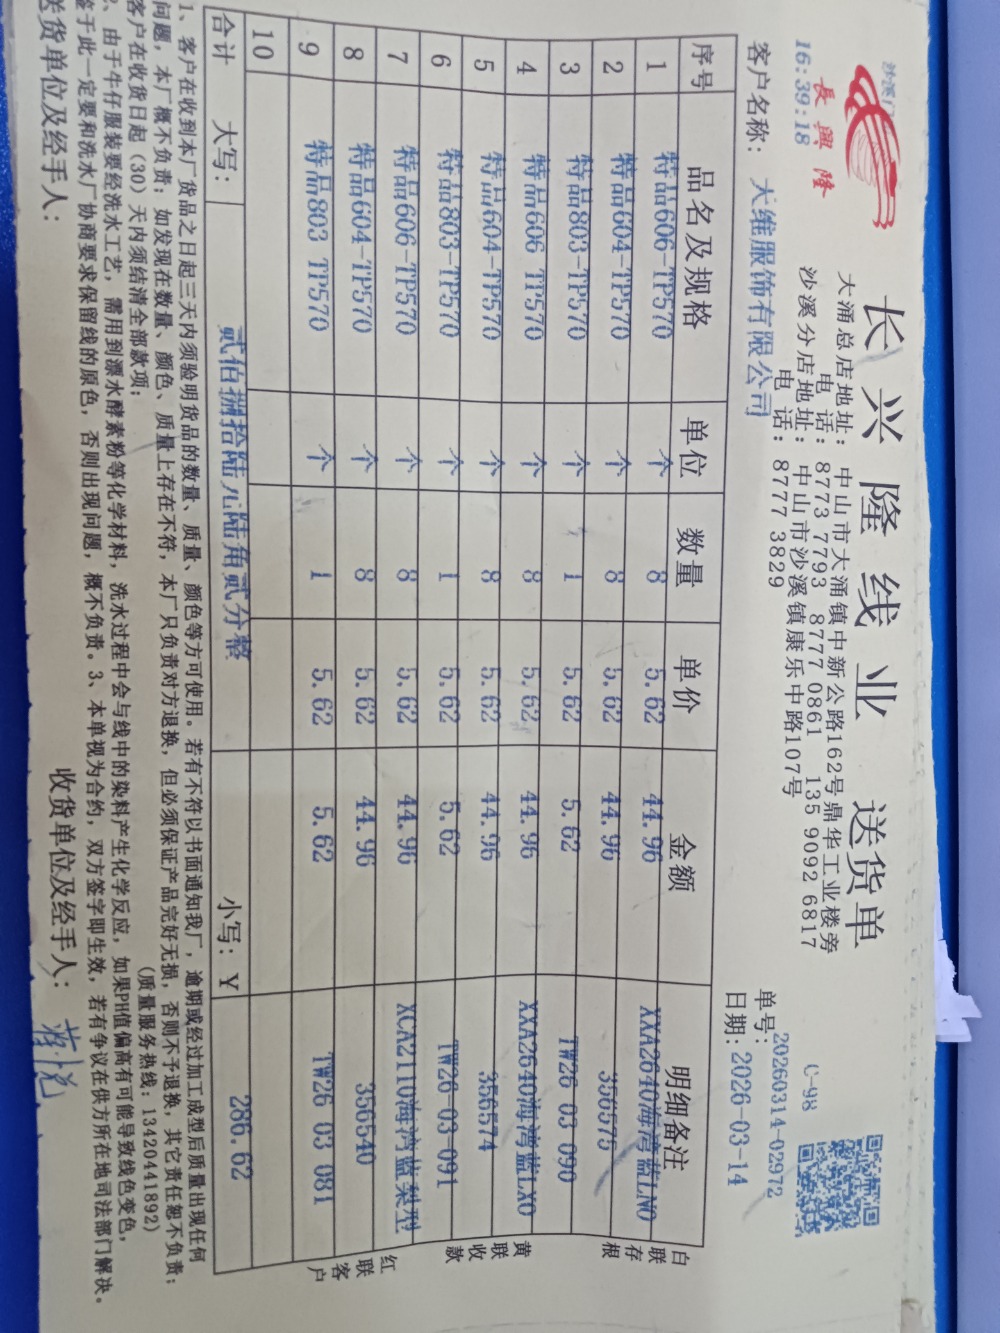 沙溪
16:39:18
長興隆
长兴隆线业 送货单
大涌总店地址：中山市大涌镇中新公路162号鼎华工业楼旁
电话：8773 7793 8777 0861 135 9092 6817
沙溪分店地址：中山市沙溪镇康乐中路107号
电话：8777 3829
C-98
单号：20260314-02972
客户名称：大维服饰有限公司
日期：2026-03-14
序号 品名及规格 单位 数量 单价 金额 明细备注
1 特品606-TP570 个 8 5.62 44.96 XXA2640海湾蓝LNO
2 特品604-TP570 个 8 5.62 44.96 356575
3 特品803-TP570 个 1 5.62 5.62 TW26 03 090
4 特品606 TP570 个 8 5.62 44.96 XXA2640海湾蓝LXO
5 特品604-TP570 个 8 5.62 44.96 356574
6 特品803-TP570 个 1 5.62 5.62 TW26-03-091
7 特品606-TP570 个 8 5.62 44.96 XCA2110海湾蓝梨型
8 特品604-TP570 个 8 5.62 44.96 356640
9 特品803 TP570 个 1 5.62 5.62 TW26 03 081
10
合计 大写： 贰佰捌拾陆元陆角贰分整 小写：¥ 286.62
白联存根
黄联收款
红联客户
1、客户在收到本厂货品之日起三天内须验明货品的数量、质量、颜色等方可使用。若有不符以书面通知我厂，逾期或经过加工成型后质量出现任何
问题，本厂概不负责；如发现在数量、颜色、质量上存在不符，本厂只负责对方退换，但必须保证产品完好无损，否则不予退换，其它责任恕不负责；
客户在收货日起（30）天内须结清全部款项；（质量服务热线：13420441892）
2、由于牛仔服装要经洗水工艺，需用到漂水酵素粉等化学材料，洗水过程中会与线中的染料产生化学反应，如果PH值偏高有可能导致线色变色，
鉴于此一定要和洗水厂协商要求保留线的原色，否则出现问题，概不负责。3、本单视为合约，双方签字即生效，若有争议在供方所在地司法部门解决。
送货单位及经手人： 收货单位及经手人：